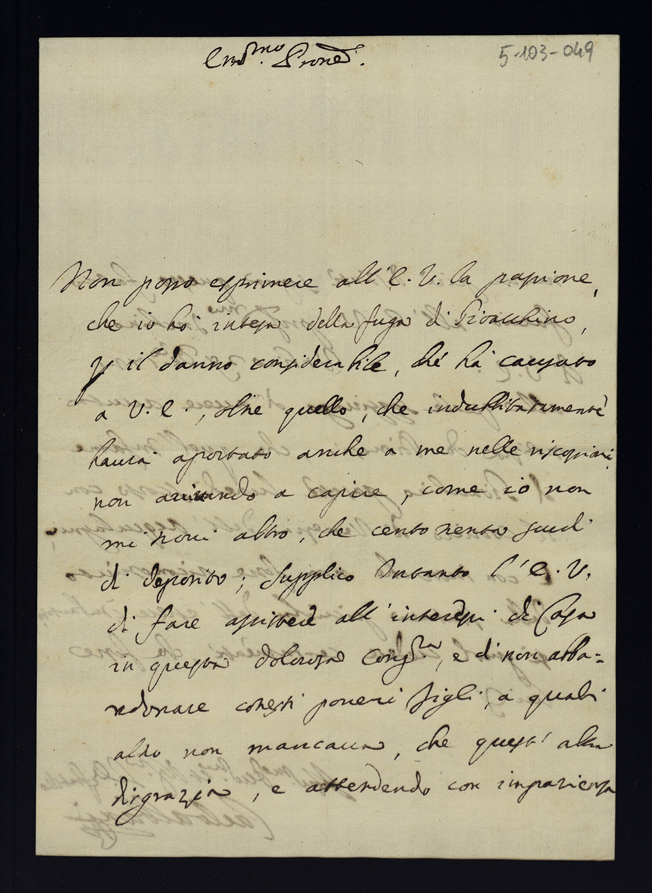 5-103-049
Em.mo Prone.
Non posso esprimere all' E. V. la passione,
che io hò intesa della fuga di Gioacchino,
il danno considerabile, ché hà causato
a V. E., oltre quello, che indubbitatamente
haurà aportato anche a me nelle riscosioni
non arivando a capire, come io non
mi trovi altro, che cento trenta scudi
di deposito; supplico Intanto l' E. V.
di fare assistere all' interessi di Casa
in questa dolorosa Cong.ra, e di non abba=
ndonare cotesti poveri figli, a quali
altro non mancava, che quest' altra
disgrazia, e attendendo con impazienza